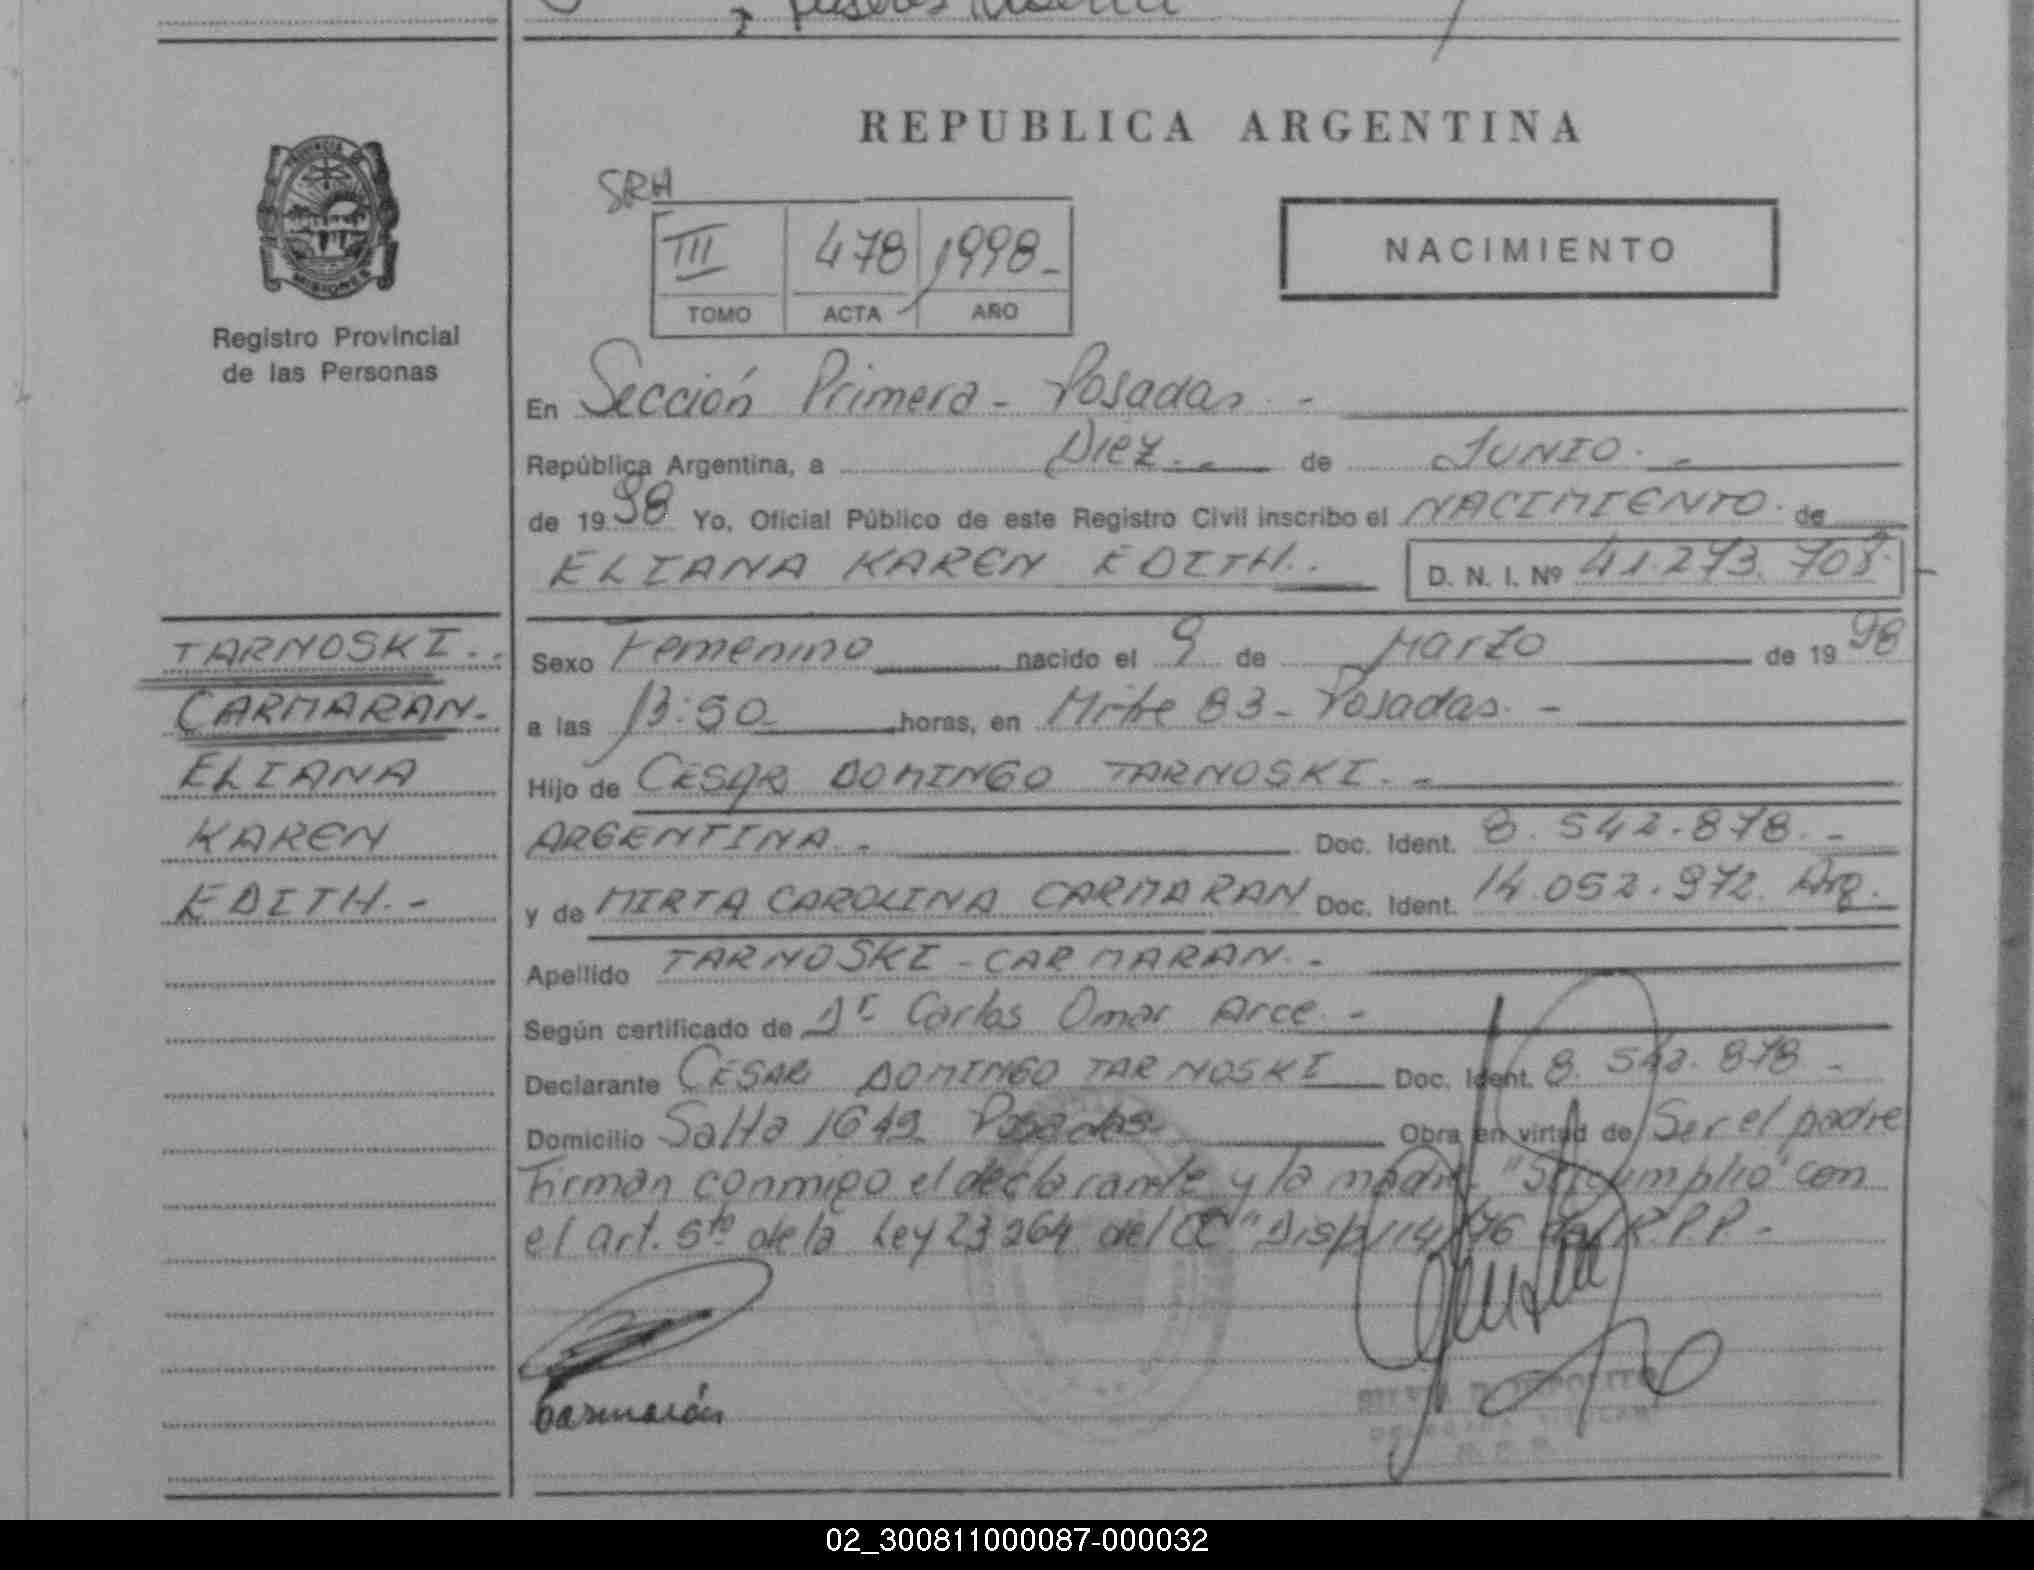 REPUBLICA ARGENTINA
PROVINCIA DE
MISIONES
Registro Provincial
de las Personas
SRH
III 478 1998-
TOMO ACTA AÑO
NACIMIENTO
En Sección Primera - Posadas. -
República Argentina, a Diez. - de JUNIO. -
de 1998 Yo, Oficial Público de este Registro Civil inscribo el NACIMIENTO. de
ELIANA KAREN EDITH.. D. N. I. Nº 41.273.708.
TARNOSKI..
CARMARAN.
ELIANA
KAREN
EDITH. -
Sexo Femenino nacido el 9 de Marzo de 1998
a las 13:50 horas, en Mitre 83 - Posadas. -
Hijo de CESAR DOMINGO TARNOSKI. -
ARGENTINA. - Doc. Ident. 8.542.878. -
y de MIRTA CAROLINA CARMARAN Doc. Ident. 14.052.972. Arg.
Apellido TARNOSKI - CARMARAN. -
Según certificado de Dr. Carlos Omar Arce. -
Declarante CESAR DOMINGO TARNOSKI Doc. Ident. 8.542.878 -
Domicilio Salta 1649 Posadas Obra en virtud de Ser el padre
Firman conmigo el declarante y la madre. "Se cumplio" con
el art. 5to de la Ley 23264 del CC" Disp. 114/76 del R.P.P. -
Carmarán
02_300811000087-000032